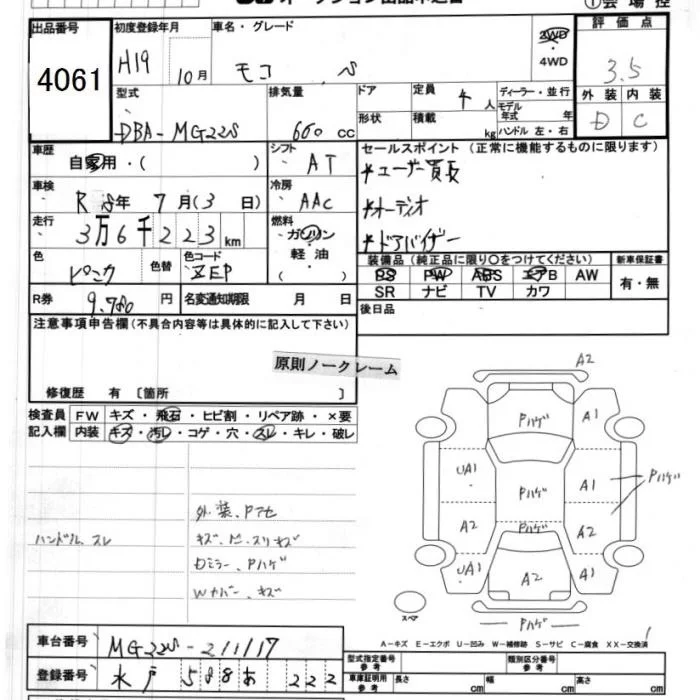 出品番号 初度登録年月 車名・グレード ①会場控
4061 H19 10月 モコ 2WD ・ 4WD 評価点 3.5
型式 排気量 ドア 定員 4人 ディーラー・並行
形状 積載 kg モデル年式 年 ハンドル 左・右
外装 内装
DBA-MG22S 660 cc D C
車歴 自家用・( ) シフト AT セールスポイント (正常に機能するものに限ります)
*ユーザー買長
車検 年 7月(3日) 冷房 AAC *オーディオ
走行 3万6千223km 燃料 ガソリン・軽油・( ) *ドアバイザー
色 ピンク 色替 色コード ZEP
装備品(純正品に限り○をつけてください) 新車保証書
PS PW ABS エアB AW 有・無
SR ナビ TV カワ
R券 9.780円 名変通知期限 月 日 後日品
注意事項申告欄(不具合内容等は具体的に記入して下さい)
原則ノークレーム
修復歴 有 〔箇所 〕
検査員記入欄 FW キズ・飛石・ヒビ割・リペア跡・×要
内装 キズ・汚レ・コゲ・穴・スレ・キレ・破レ
外装、Pアセ
ハンドル、スレ
キズ、スリキズ
Dミラー、Pハゲ
Wカバー、キズ
A2
Pハゲ A1
UA1 Pハゲ A1 Pハゲ
A2 Pハゲ A2
UA1 A2 A1
スペア Pハゲ
A-キズ E-エクボ U-凹み W-補修跡 S-サビ C-腐食 XX-交換済
車台番号 MG22S-211117
登録番号 水戸 588 あ 222
型式指定番号 参考 類別区分番号 参考
車庫証明用 参考 長さ cm 幅 cm 高さ cm